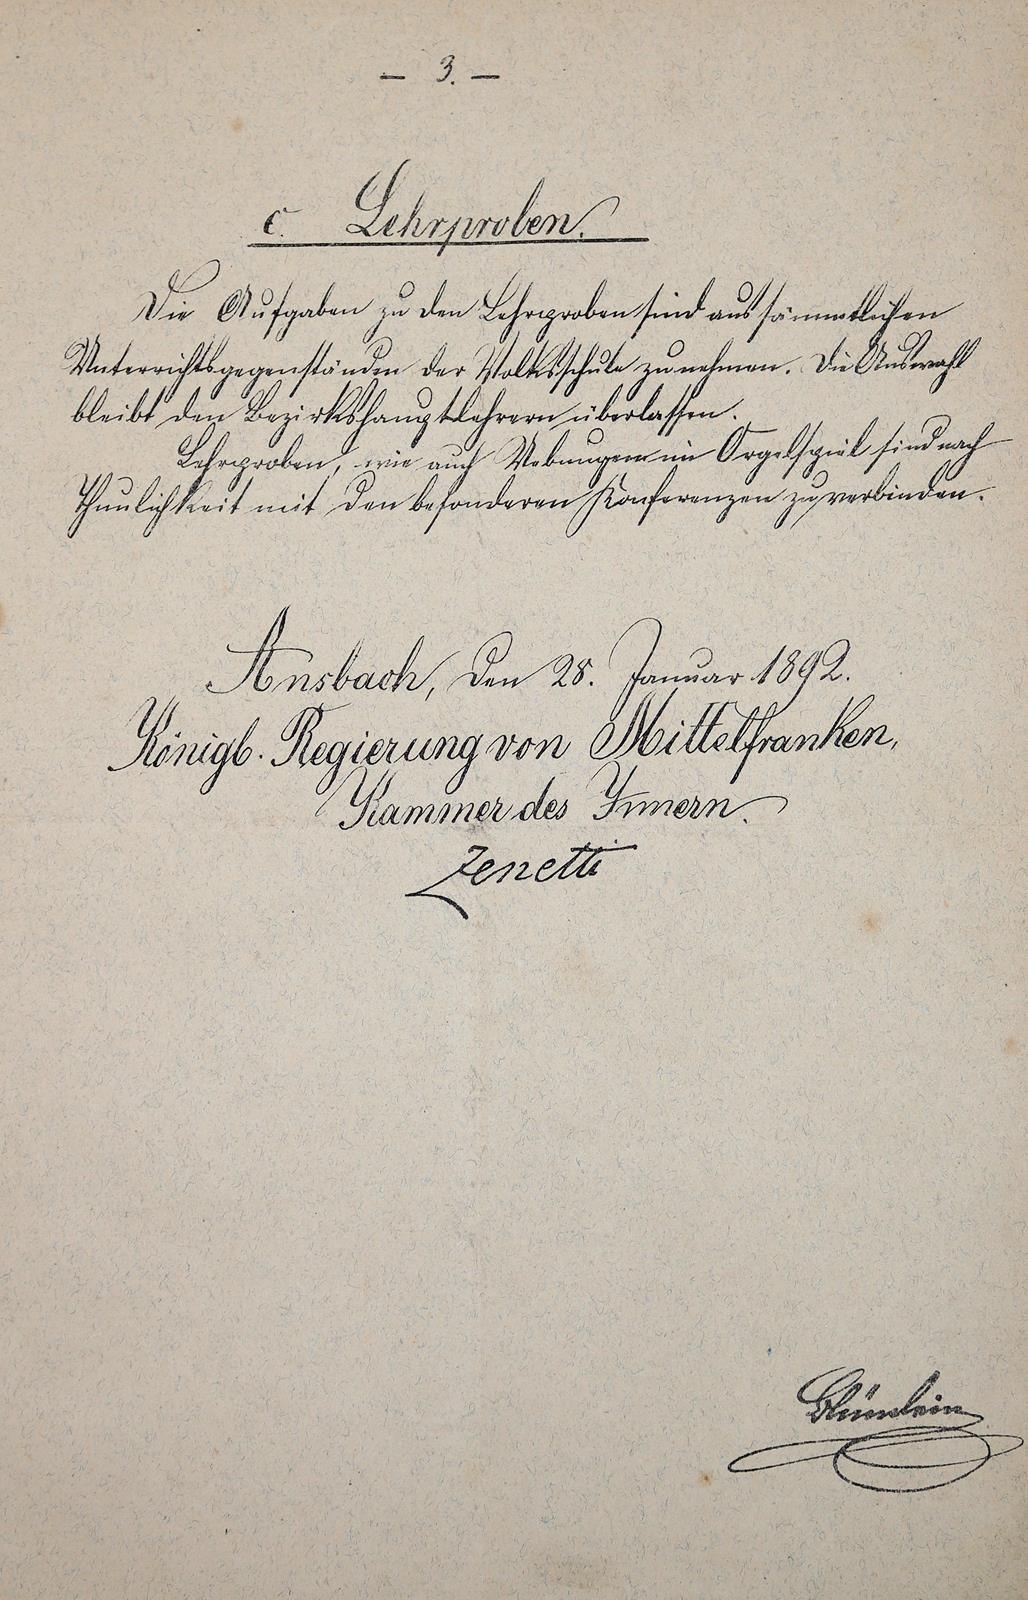 – 3. –
c. Lehrproben.
Die Aufgaben zu den Lehrproben sind aus sämmtlichen
Unterrichtsgegenständen der Volksschule zu nehmen. Die Auswahl
bleibt den Bezirkshauptlehrern überlassen.
Lehrproben, wie auch Uebungen im Orgelspiel sind nach
Thunlichkeit mit den besonderen Konferenzen zu verbinden.
Ansbach, den 28. Januar 1892.
Königl. Regierung von Mittelfranken,
Kammer des Innern.
Zenetti
Blümlein